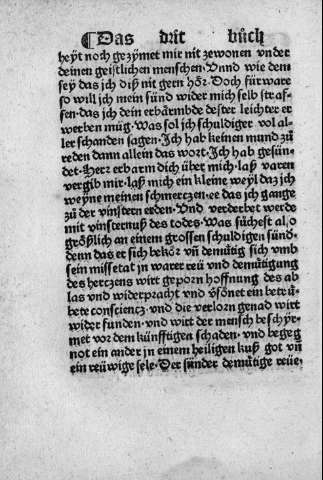 ¶Das drit bůch
heyt noch gezymet mir nit zewonen vnder
deinen geistlichen menschen. Vnnd wie dem
sey das ich diß nit gern hör. Doch fürware
so will ich mein sünd wider mich selb straf-
fen. das ich dein erbärmbde dester leichter er
werben müg. Was sol ich schuldiger vol al-
ler schanden sagen. Ich hab keinen mund zů
reden dann allein das wort. Ich hab gesün
det. Herr erbarm dich über mich. laß varen
vergib mir. laß mich ein kleine weyl daz ich
weyne meinen schmertzen. ee das ich gange
zů der vinstern erden. Vnd verderbet werde
mit vinsternuß des todes. Was sůchest also
größlich an einem grossen schuldigen sünd-
denn das er sich bekör vñ demütig sich vmb
sein missetat in warer reü vnd demütigung
des hertzens wirt geporn hoffnung des ab
las vnd widerpracht vnd ꝟsönet ein betrü-
bete conscientz. vnd die verlorn genad wirt
wider funden. vnd wirt der mensch beschyr-
met vor dem künfftigen schaden. vnd begeg
not ein ander in einem heiligen kuß got vñ
ein reüwige sele. Der sünder demütige reüe.